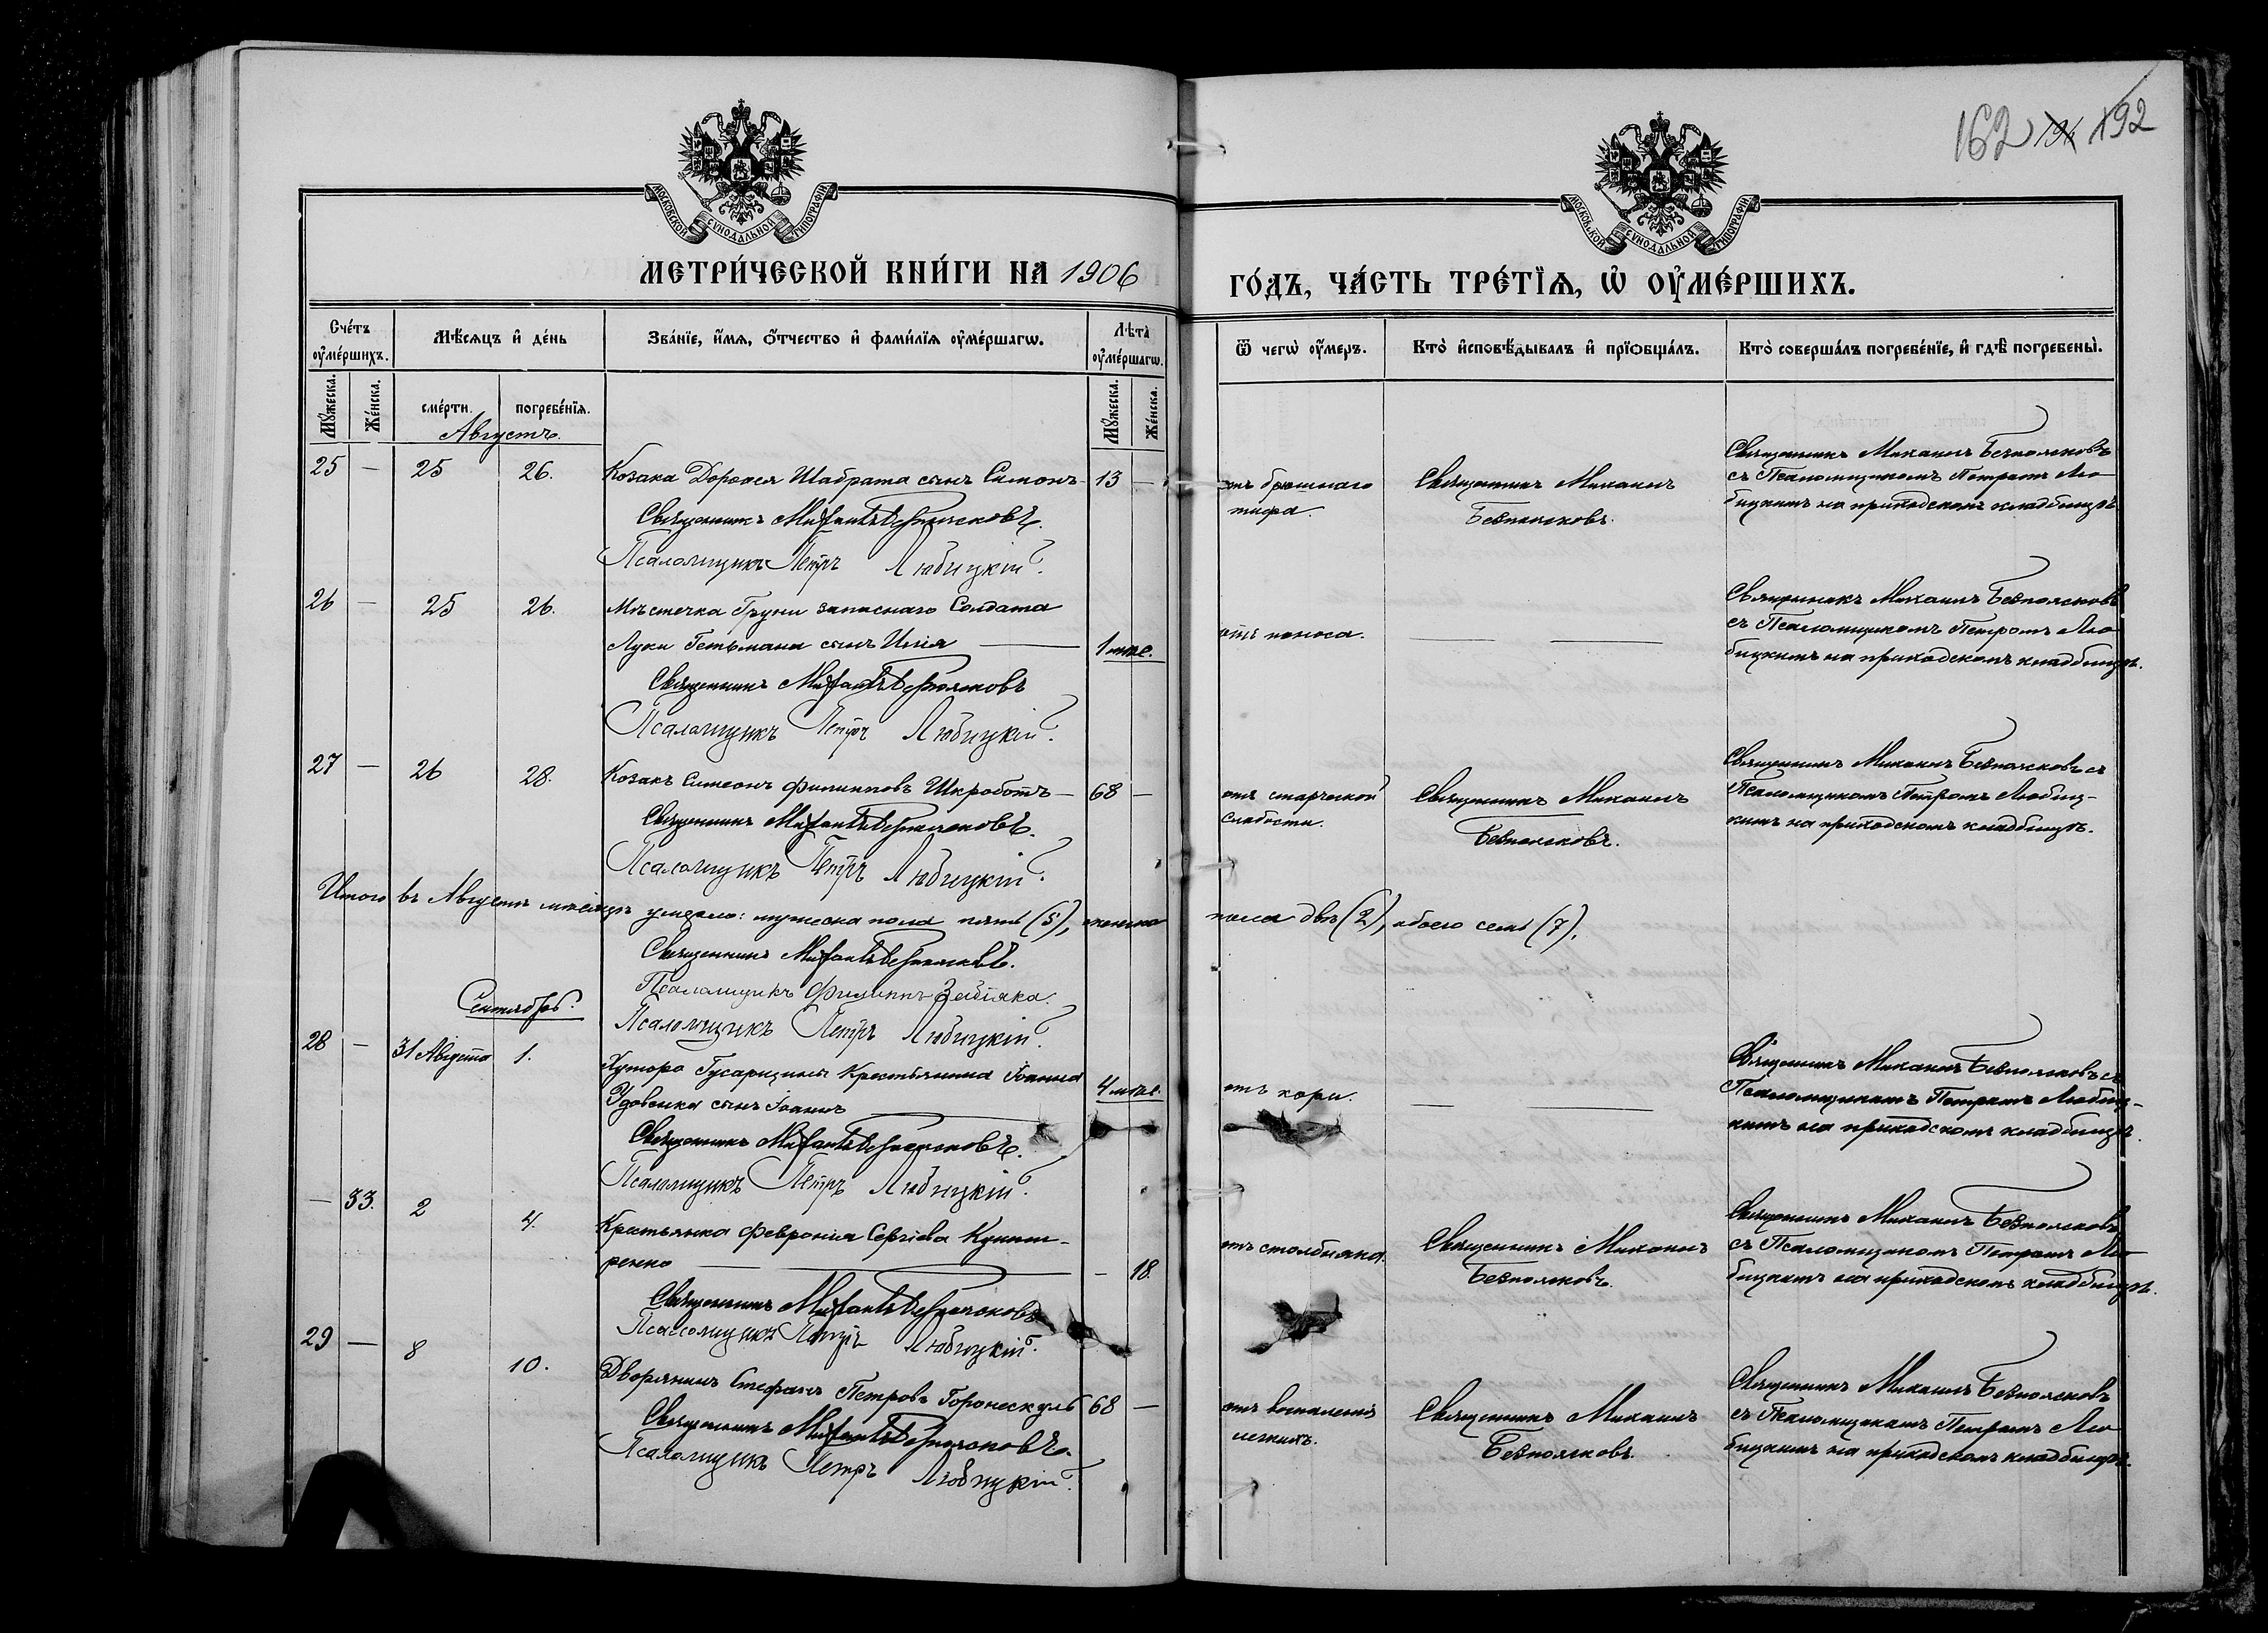 162 194 192
МОСКОВСКОЙ СѴНОДАЛЬНОЙ ТИПОГРАФІИ
МОСКОВСКОЙ СѴНОДАЛЬНОЙ ТИПОГРАФІИ
МЕТРИ́ЧЕСКОЙ КНИ́ГИ НА 1906
ГО́ДЪ, ЧА́СТЬ ТРЕ́ТІѦ, Ѡ҆ ОУ҆МЕ́РШИХЪ.
Сче́тъ оу҆ме́ршихъ.
Мѣ́сѧцъ и҆ де́нь
Зва́нїе, и҆́мѧ, ѻ҆́тчество и҆ фами́лїѧ оу҆ме́ршагѡ.
Лѣ́та оу҆ме́ршагѡ.
Ѿ чегѡ̀ оу҆́меръ.
Кто̀ и҆сповѣ́дывалъ и҆ прїѻбща́лъ.
Кто̀ соверша́лъ погребе́нїе, и҆ гдѣ̀ погребены̀.
Мꙋ́жеска.
Же́нска.
сме́рти.
погребе́нїѧ.
Мꙋ́жеска.
Же́нска.
Августъ.
25 — 25 26. Козака Дорофея Шабрата сынъ Симонъ 13 —
Священникъ Михаилъ Безпоясковъ.
Псаломщикъ Петръ Любицкій.
отъ брюшнаго
тифа.
Священникъ Михаилъ
Безпоясковъ.
Священникъ Михаилъ Безпоясковъ
съ Псаломщикомъ Петромъ Лю-
бицкимъ на приходскомъ кладбищѣ.
26 — 25 26. Мѣстечка Груни запаснаго Солдата
Луки Гетьмана сынъ Илія — 1 мѣс.
Священникъ Михаилъ Безпоясковъ
Псаломщикъ Петръ Любицкій.
отъ поноса.
— —
Священникъ Михаилъ Безпоясковъ
съ Псаломщикомъ Петромъ Лю-
бицкимъ на приходскомъ кладбищѣ.
27 — 26 28. Козакъ Симеонъ Филипповъ Шкроботъ — 68 —
Священникъ Михаилъ Безпоясковъ.
Псаломщикъ Петръ Любицкій.
отъ старческой
слабости.
Священникъ Михаилъ
Безпоясковъ.
Священникъ Михаилъ Безпоясковъ съ
Псаломщикомъ Петромъ Любиц-
кимъ на приходскомъ кладбищѣ.
Итого въ Августѣ мѣсяцѣ умерло: мужеска пола пять (5), женска
пола двѣ (2), обоего семь (7).
Священникъ Михаилъ Безпоясковъ.
Псаломщикъ Филиппъ Забіяка.
Псаломщикъ Петръ Любицкій.
Сентябрь.
28 — 31 Августа 1. Хутора Гусарщины Крестьянина Іоанна
Удовенка сынъ Іоаннъ — 4 мѣс.
Священникъ Михаилъ Безпоясковъ.
Псаломщикъ Петръ Любицкій.
отъ кори.
— —
Священникъ Михаилъ Безпоясковъ съ
Псаломщикомъ Петромъ Любиц-
кимъ на приходскомъ кладбищѣ.
— 33. 2 4. Крестьянка Феврония Сергіева
ренко — — 18.
Священникъ Михаилъ Безпоясковъ
Псаломщикъ Петръ Любицкій.
отъ столбняка.
Священникъ Михаилъ
Безпоясковъ.
Священникъ Михаилъ Безпоясковъ
съ Псаломщикомъ Петромъ Лю-
бицкимъ на приходскомъ кладбищѣ.
29 — 8 10. Дворянинъ Стефанъ Петровъ Горонескуль 68 —
Священникъ Михаилъ Безпоясковъ.
Псаломщикъ Петръ Любицкій.
отъ воспаленія
легкихъ.
Священникъ Михаилъ
Безпоясковъ.
Священникъ Михаилъ Безпоясковъ
съ Псаломщикомъ Петромъ Лю-
бицкимъ на приходскомъ кладбищѣ.